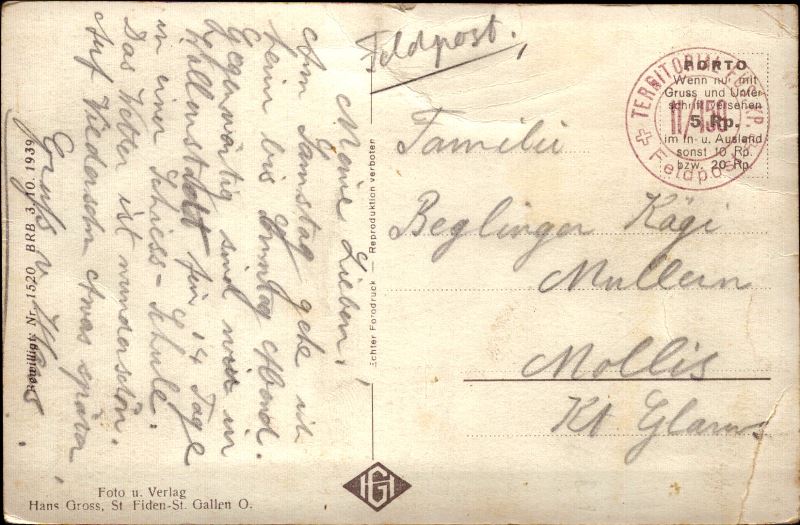 Feldpost.
Meine Lieben!
Am Samstag gehe ich
heim bis Sonntag Abend.
Gegenwärtig sind wir in
Wallenstadt für 14 Tage
in einer Schiess-Schule.
Das Wetter ist wunderschön.
Auf Wiedersehn etwas später.
Gruss v.
Familie
Beglinger Kägi
Mullern
Mollis
Kt. Glarus
PORTO
Wenn nur mit
Gruss und Unter-
schrift versehen
5 Rp.
im In- u. Ausland
sonst 10 Rp.
bzw. 20 Rp.
TERRITORIAL
II/158
Feldpost
Echter Fotodruck — Reproduktion verboten
Bewilligt: Nr. 1520 BRB 3.10.1939
HG
Foto u. Verlag
Hans Gross, St Fiden-St. Gallen O.